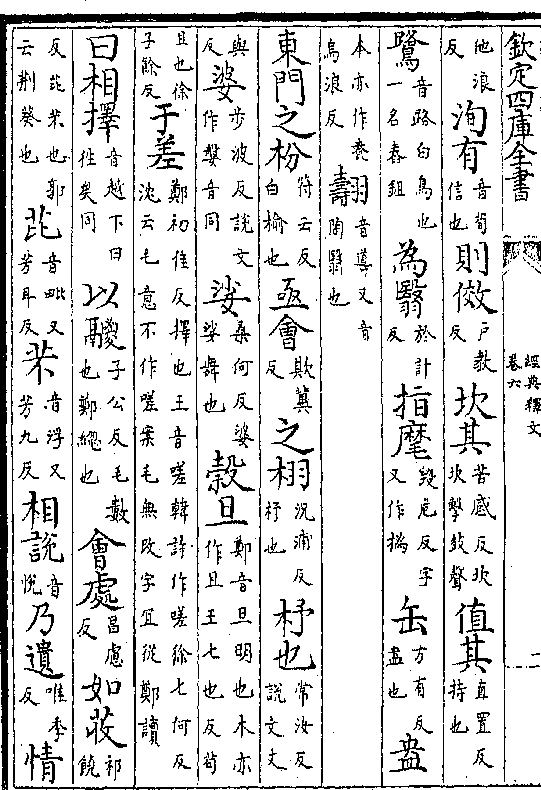 欽定四庫全書 經典釋文卷六 二
他浪反洵有音荀信也則傚戶教反坎其苦感反坎坎擊鼓聲值其直置反持也
鷺音路白鳥也一名舂鉏為翳於計反指麾毀危反字又作撝缶方有反盎也盎
本亦作烏浪反翿音導又音陶翳也
東門之枌符云反白榆也亟會欺冀反之栩況浦反杼也杼也常汝反說文丈
與反婆步波反說文作媻音同娑桑何反婆娑舞也榖旦鄭音旦明也本亦作且王七也反苟
且也徐子餘反于差鄭初佳反擇也王音嗟韓詩作嗟徐七何反沈云毛意不作嗟案毛無改字宜從鄭讀
曰相擇音越下曰往矣同以鬷子公反毛數也鄭緫也會處昌慮反如荍祁饒
反芘芣也郭云荆葵也芘音毗又芳耳反芣音浮又芳九反相說音悅乃遺唯季反情